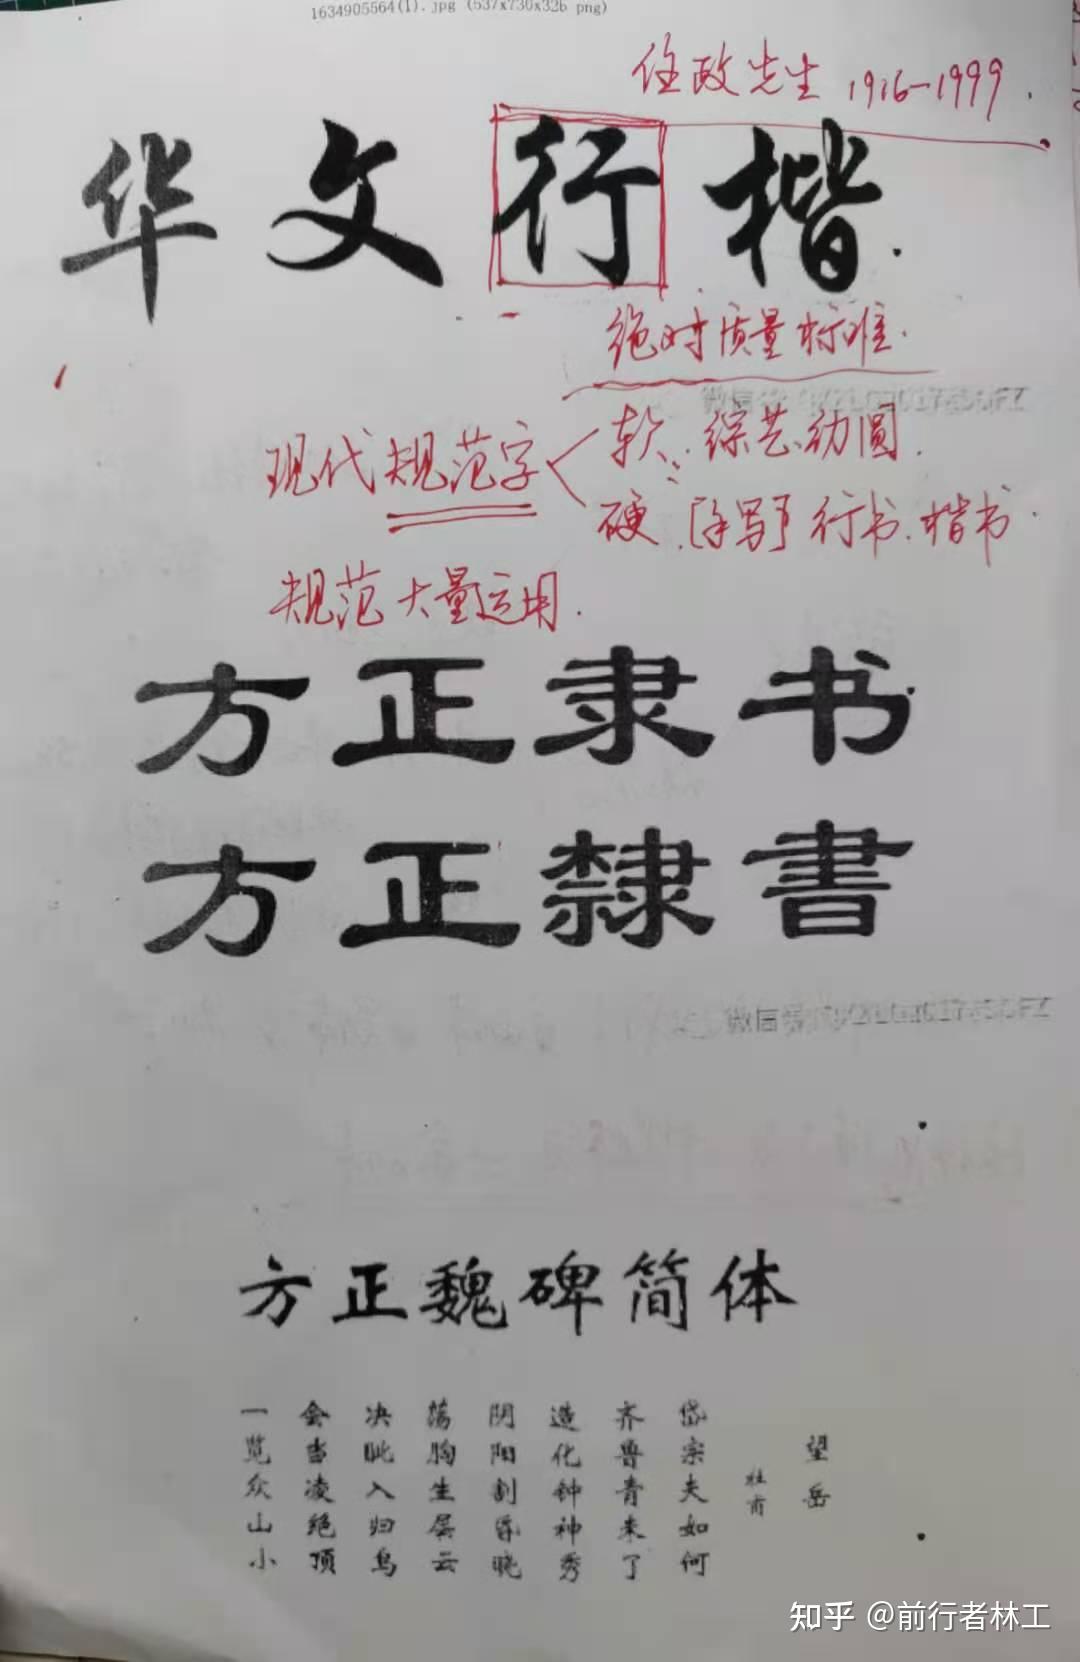 1634905564(1).jpg (537x730x32b png)
任政先生 1916-1999.
华文行楷
绝对质量标准.
现代规范字
软、综艺、幼圆.
硬.[手写]行书、楷书.
规范大量运用.
方正隶书
方正隸書
方正魏碑简体
望岳
杜甫
岱宗夫如何
齐鲁青未了
造化钟神秀
阴阳割昏晓
荡胸生层云
决眦入归鸟
会当凌绝顶
一览众山小
知乎 @前行者林工